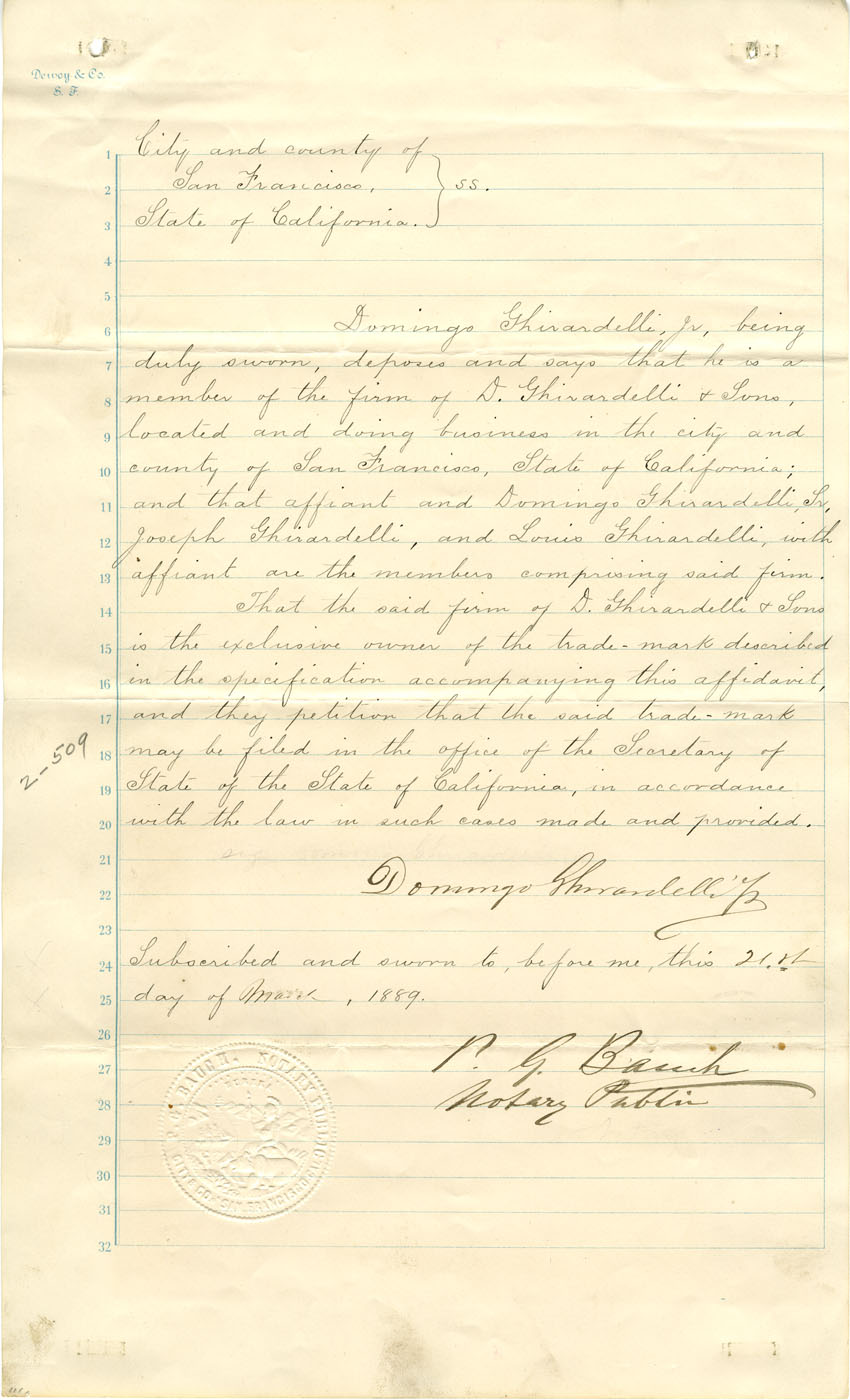 Dewey & Co.
S. F.
1 City and county of
2 San Francisco, } ss.
3 State of California.
4
5
6 Domingo Ghirardelli, Jr, being
7 duly sworn, deposes and says that he is a
8 member of the firm of D. Ghirardelli & Sons,
9 located and doing business in the city and
10 county of San Francisco, State of California;
11 and that affiant and Domingo Ghirardelli, Sr,
12 Joseph Ghirardelli, and Louis Ghirardelli, with
13 affiant are the members comprising said firm.
14 That the said firm of D. Ghirardelli & Sons
15 is the exclusive owner of the trade-mark described
16 in the specification accompanying this affidavit,
17 and they petition that the said trade-mark
18 may be filed in the office of the Secretary of
19 State of the State of California, in accordance
20 with the law in such cases made and provided.
21
22 Domingo Ghirardelli Jr
23
24 Subscribed and sworn to, before me, this 21.st
25 day of March, 1889.
26
27 P. G. Baugh
28 Notary Public
29
30
31
32
2-509
BAUGH. NOTARY PUBLIC
CITY & CO. SAN FRANCISCO